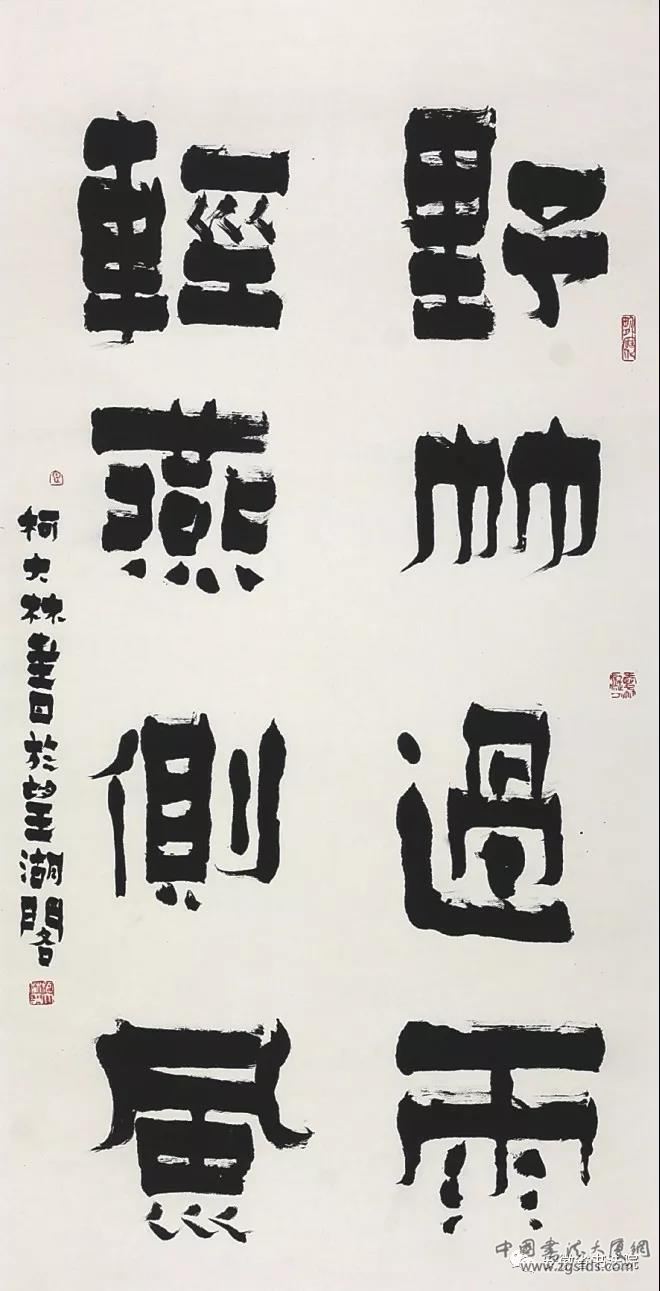 野竹過雨
輕燕側風
柯大林書於望湖閣
中國書法大廈網
www.zgsfds.com